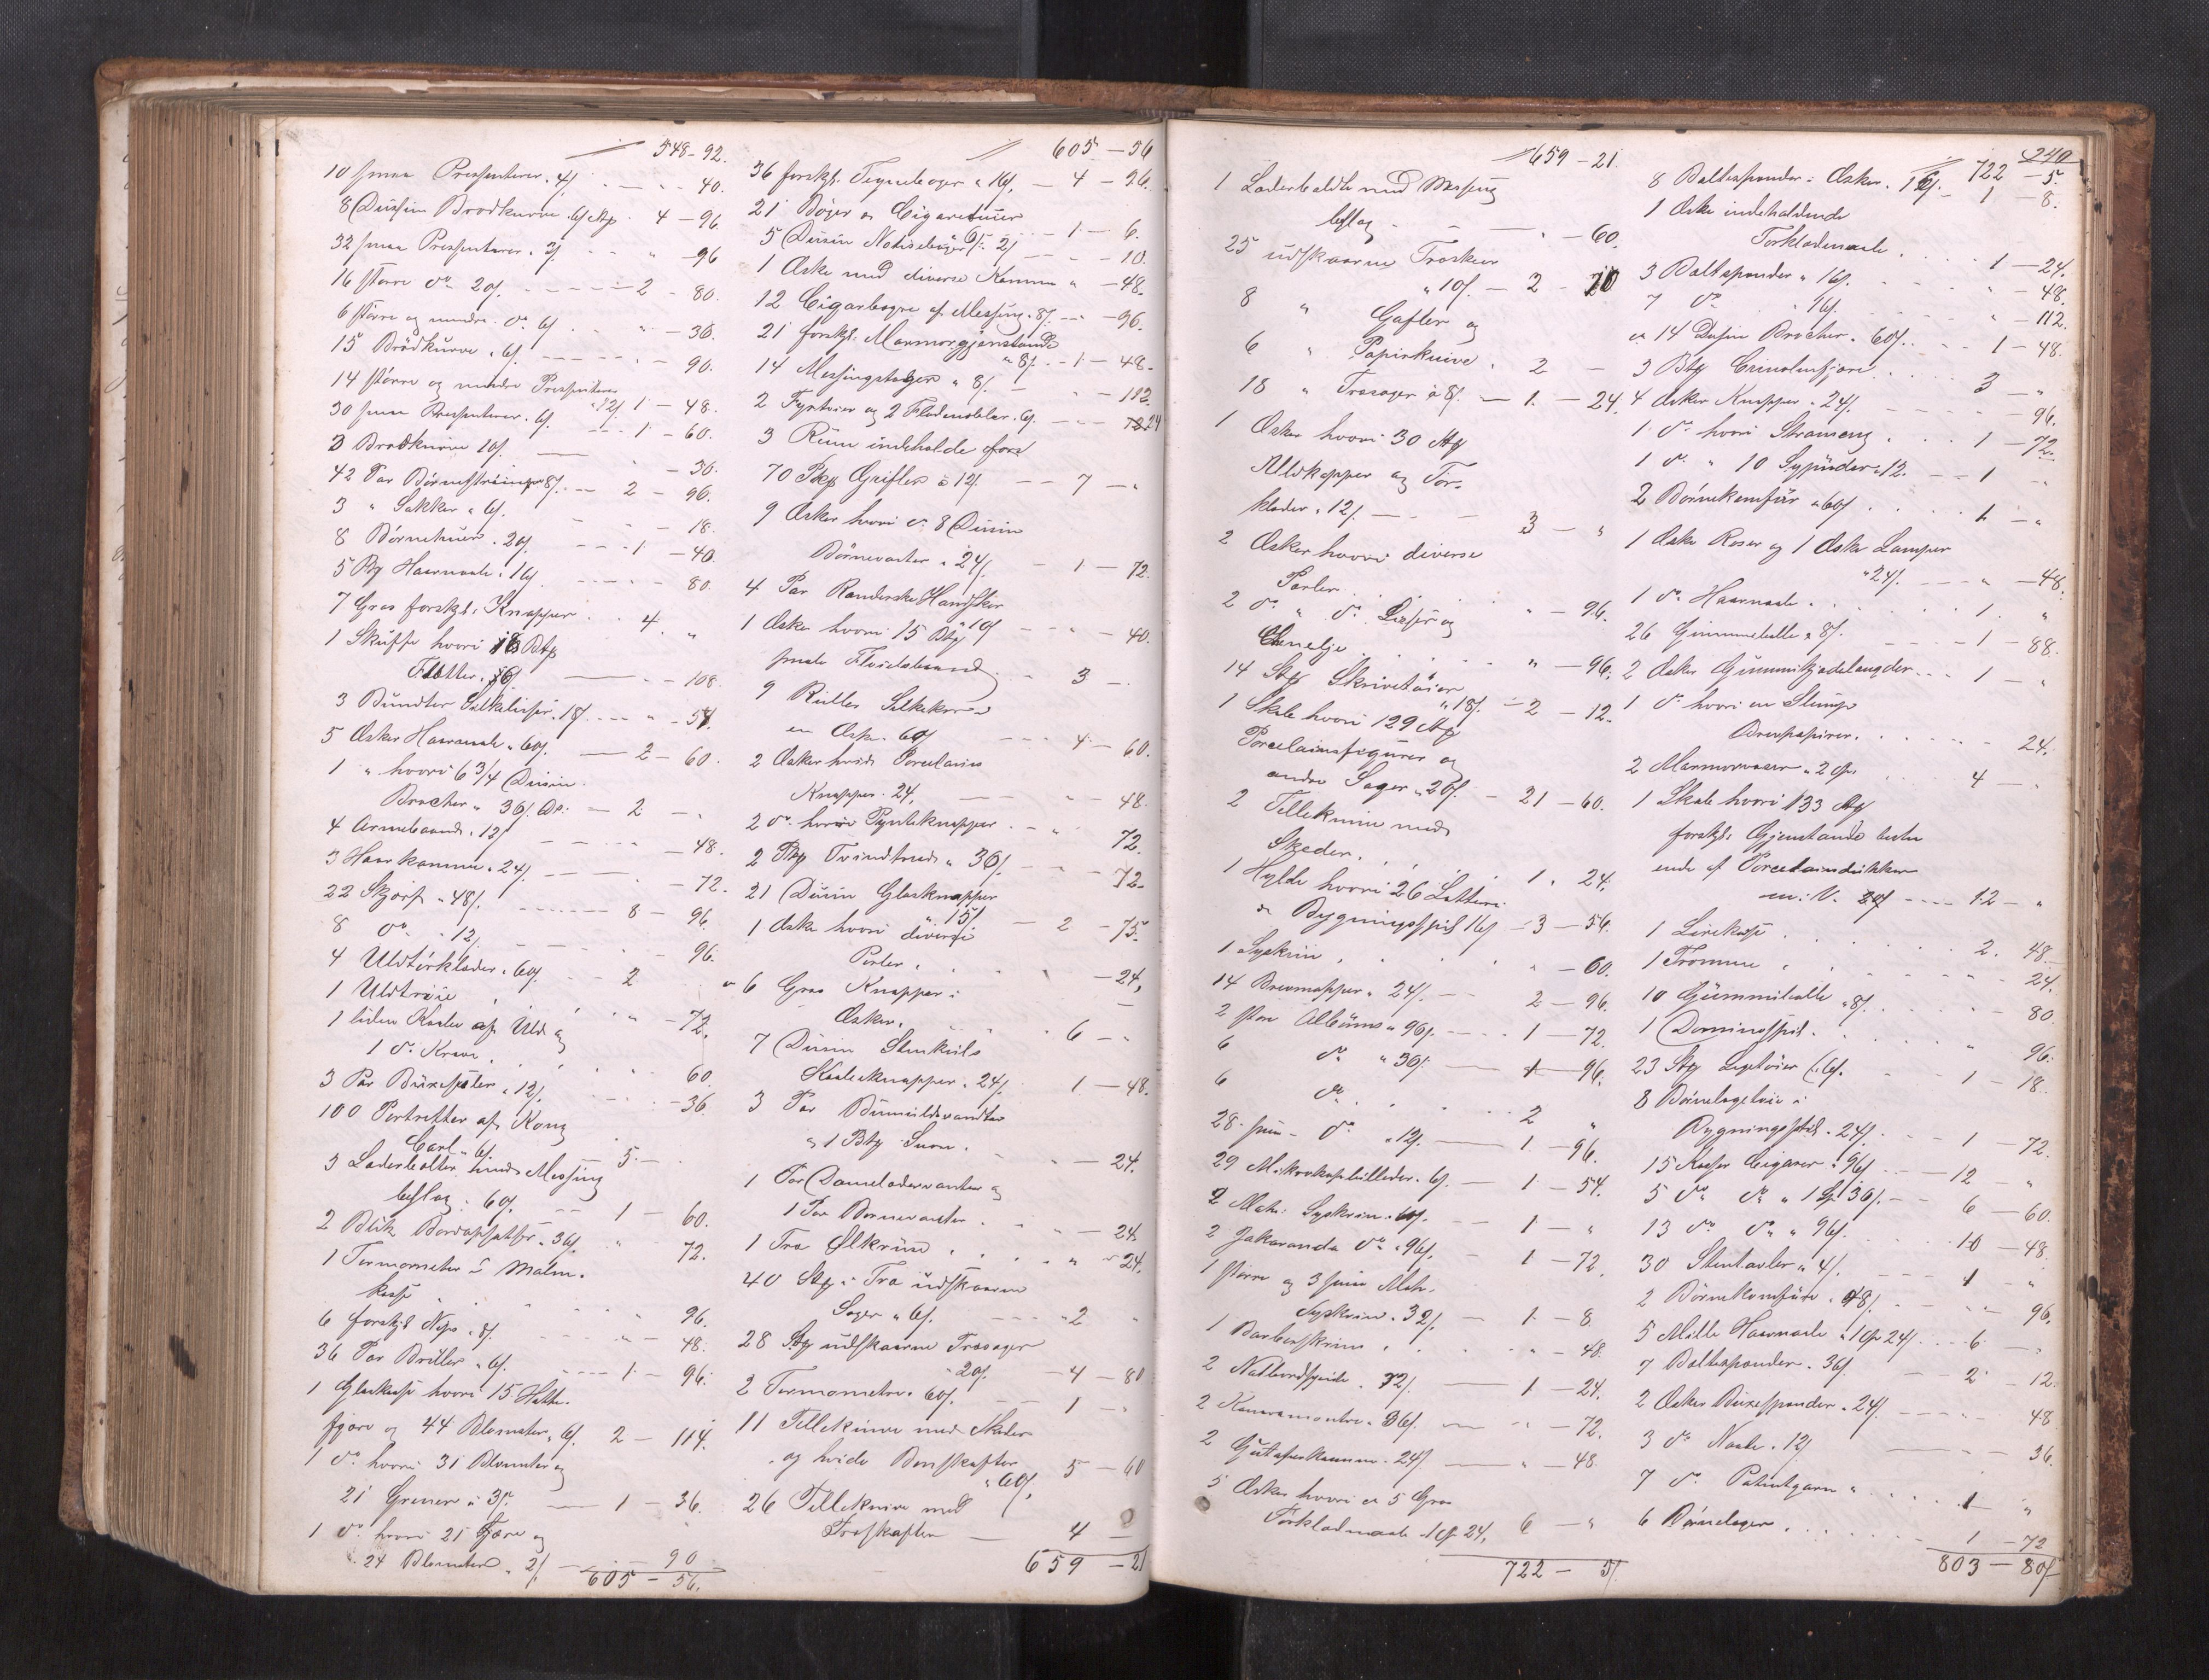 548-92.
10 smaa Presenterer. 4/ - 40.
8 Dusin Brodkurve. 6/ Stp 4 - 96.
32 smaa Presenterer. 3/ " - 96
16 større do 20/. - 2 - 80.
6 større og mindre do 6/ - 36.
15 Brödkurve. 6/. - 90.
14 större og mindre Presenterer
" 12/ 1 - 48.
30 smaa Presenterer. 6/. - 1 - 60.
3 Brodknive 10/. - 30.
42 Par Børnestrømper 8/. - 2 - 96.
3 " Sokker " 6/. - 18.
8 Børnehuer. 20/. - 1 - 40.
5 Bg Haarnaale. 16/. - 80.
7 Gros forskjl. Knapper. 4. "
1 Skuffe hvori 18 Btp
Fløtter. 6/ - 108.
3 Bundter Silkelisser. 18/. - 54.
5 Æsker Haarnaale. 60/. - 2 - 60.
1 " hvori 6 3/4 Dusin
Brocher " 36/. Ds: - 2 -
4 Armbaand. 12/ - 48.
3 Haarkamme. 24/. - 72.
22 Skjørt. 48/. - 8 - 96.
8 do 12/. - 96.
4 Uldtörklæder. 60/. - 2
1 Uldtröie - 72.
1 liden Kaabe af Uld og
1 do Krave. 60.
3 Par Buxeseler. 12/. - 36.
100 Portretter af Kong
Carl. 6/. 5. -
3 Læderbelter med Messing
beslag. 60/. 1 - 60.
2 Blik Bordopsatser. 36/. " 72.
1 Termometer i Malm.
kasse 96.
6 forskjl Nips. 8/. - 48.
36 Par Briller. 6/. - 1 - 96.
1 Glaskasse hvori 15 Hatte.
fjære og 44 Blomster. 6/. 2 - 114.
1 do hvori 31 Blomster og
21 Grener à 3/. - 1 - 36.
1 do hvori 21 Fjære og
24 Blomster. 2/. - 90
605 - 56.
605 - 56
36 forskjl. Tegnebøger " 16/. - 4 - 96.
21 Bøger og Cigaretuier
6/. - 1 - 6.
5 Dusin Notisebøger 2/ - 10.
1 Æske med diverse Kamme " - 48.
12 Cigarbægre af Messing. 8/. - 96.
21 forskjl. Marmorgjenstande
" 8/. - 1 - 48.
14 Messingstager " 8/. - 112.
2 Fyrtøier og 2 Flødemaaler. 6/. - 24
3 Rum indeholdende
70 Pkp Grifler à 12/. - 7 - "
9 Æsker hvori ca 8 Dusin
Børnevanter. 24/. - 1 - 72.
4 Par Randerske Handsker
" 10/ - 40.
1 Æske hvori 15 Btp
smale Fløielsbaand. - 3 -
9 Ruller Silkeksnor
en Æske. 60/ - 4 - 60.
2 Æsker hvide Porcelains
Knapper. 24. - 48.
2 do hvori Pynteknapper. 72.
2 Pkp Tvindtraad " 36/. - 72.
21 Dusin Glasknapper
" 15/ - 2 - 75.
1 Æske hvori diverse
Perler. - 24.
ca 6 Gros Knapper i
Æsker. 6 - "
7 Dusin Stenkuls
Kaabeknapper. 24/. 1 - 48.
3 Par Bomuldsvanter
og 1 Btp Snore. - 24.
1 Par Damelædervanter og
1 Par Børnevanter. - 24
1 Træ Ølkrus. " - 24.
40 Stp i Træ udskaarne
Sager " 6/. - 2 "
28 Stp udskaarne Træsager
20/. - 4 - 80
2 Termometre. 60/. 1 - "
11 Tellekniive med Skeder
og hvide Benskafter
" 60/. 5 - 60
26 Telleknive med
Træskafter - 4 -
659 - 21
659 - 21.
1 Læderbelte med Messing
beslag. - 60.
25 udskaarne Træskeer
" 10/. - 2 - 70
8 " Gafler og
6 " Papirknive. 2 -
18 " Træsager à 8/. - 1. - 24.
1 Æske hvori 30 Stp
Uldkapper og Tør.
klæder. 12/. - 3 - "
2 Æsker hvori diverse
Perler. " - 96.
2 do " do Lisser og
Chenelje. " - 96.
14 Stp Skrivetøier
" 18/. - 2 - 12.
1 Skab hvori 129 Stp
Porcelainsfigurer og
andre Sager. 20/. - 21 - 60.
2 Telleknive med
Skeder. 1. 24.
1 Hylde hvori 26 Lotteri
og Bygningsspil 16/ - 3 - 56.
1 Syskrin. - 60.
14 Brevmapper. 24/. - 2 - 96.
2 store Albums. 96/. - 1 - 72.
6 do " 36/. - 1 - 96.
6 do. 2 "
28 smaa do " 12/. - 1 - 96.
29 Mikroskopbilleder. 6/. - 1 - 54.
2 Mah: Syskrin. 60/. - 1 - "
2 Jakaranda do " 96/. - 1 - 72.
1 større og 3 smaa Mah.
Syskrin. 32/. - 1 - 8
1 Barberskrin. - 48.
2 Natbordspeile. 72/. - 1 - 24.
2 Kameramontre. 36/. - 72.
2 Gutaperkamme. 24/. " - 48.
5 Æsker hvori ca 5 Gros
Tørklædnaale. 1 Sp 24. 6 - "
722 - 5/
240
722 - 5.
8 Beltespænder i Æsker. 16/. - 1 - 8.
1 Æske indeholdende
Tørklædnaale. - 1 - 24.
3 Beltespænder " 16/. " - 48.
7 do " 16/. " - 112.
ca 14 Dusin Brocher. 60/. - 1 - 48.
3 Btp Crinolinfjære. 3 - "
4 Æsker Knapper. 24/. - 96.
1 do hvori Stramens. 1 - 72.
1 do " 10 Sypuder. 12. - 1 - "
2 Børnekomfur à 60/. 1 - "
1 Æske Roser og 1 Æske Lamper
" 24/. - 48.
1 do Haarnaale. 1. "
26 Gummiballe à 8/. - 1 - 88.
2 Æsker Gummikjædelængder. - 1 - "
1 do hvori en Slump
Brevpapirer. - 24.
2 Marmorvaser " 2 Sp. 4 - "
1 Skab hvori 133 Stp
forskjl. Gjenstande beste
ende af Porcelainsdukker
m: V. - 12 - "
1 Lirekasse. 2. 48
1 Tromme. 24.
10 Gummiballe " 8/. 80
1 Dominospil. " 96.
23 Stp Legetøier 6/. - 1 - 18.
8 Børnelegetøi i
Bygningsstil. 24/. - 1 - 72.
15 Kasser Cigarer. 96/. - 12 - "
5 do do " 1 Sp 36/. - 6 - 60.
13 do do " 96/. 10 - 48
30 Stentavler " 4/. - 1 - "
2 Børnekomfure. 48/. - 96.
5 Mille Haarnaale " 1 Sp 24/. - 6 -
7 Beltespænder. 36/. - 2 - 12.
2 Æsker Buxespænder. 24/. - 48
3 do Naale. 12/ - 36.
7 do Patentgarn. 1 - "
6 Børnebøger. - 1 - 72
803 - 80/